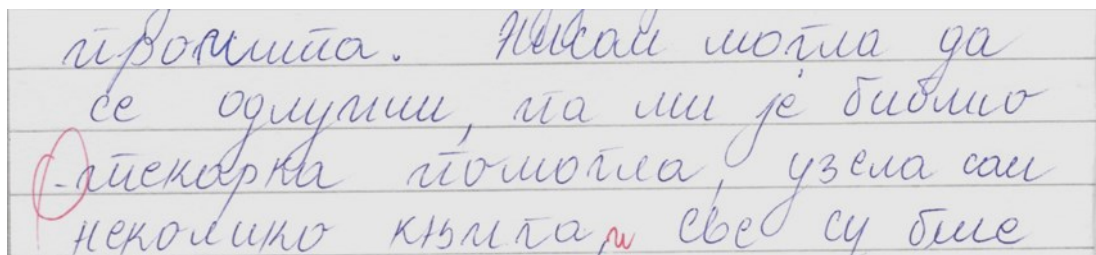 прочита. Нисам могла да
се одлучим, па ми је библио
-текарка помогла, узела сам
неколико књига, и све су биле